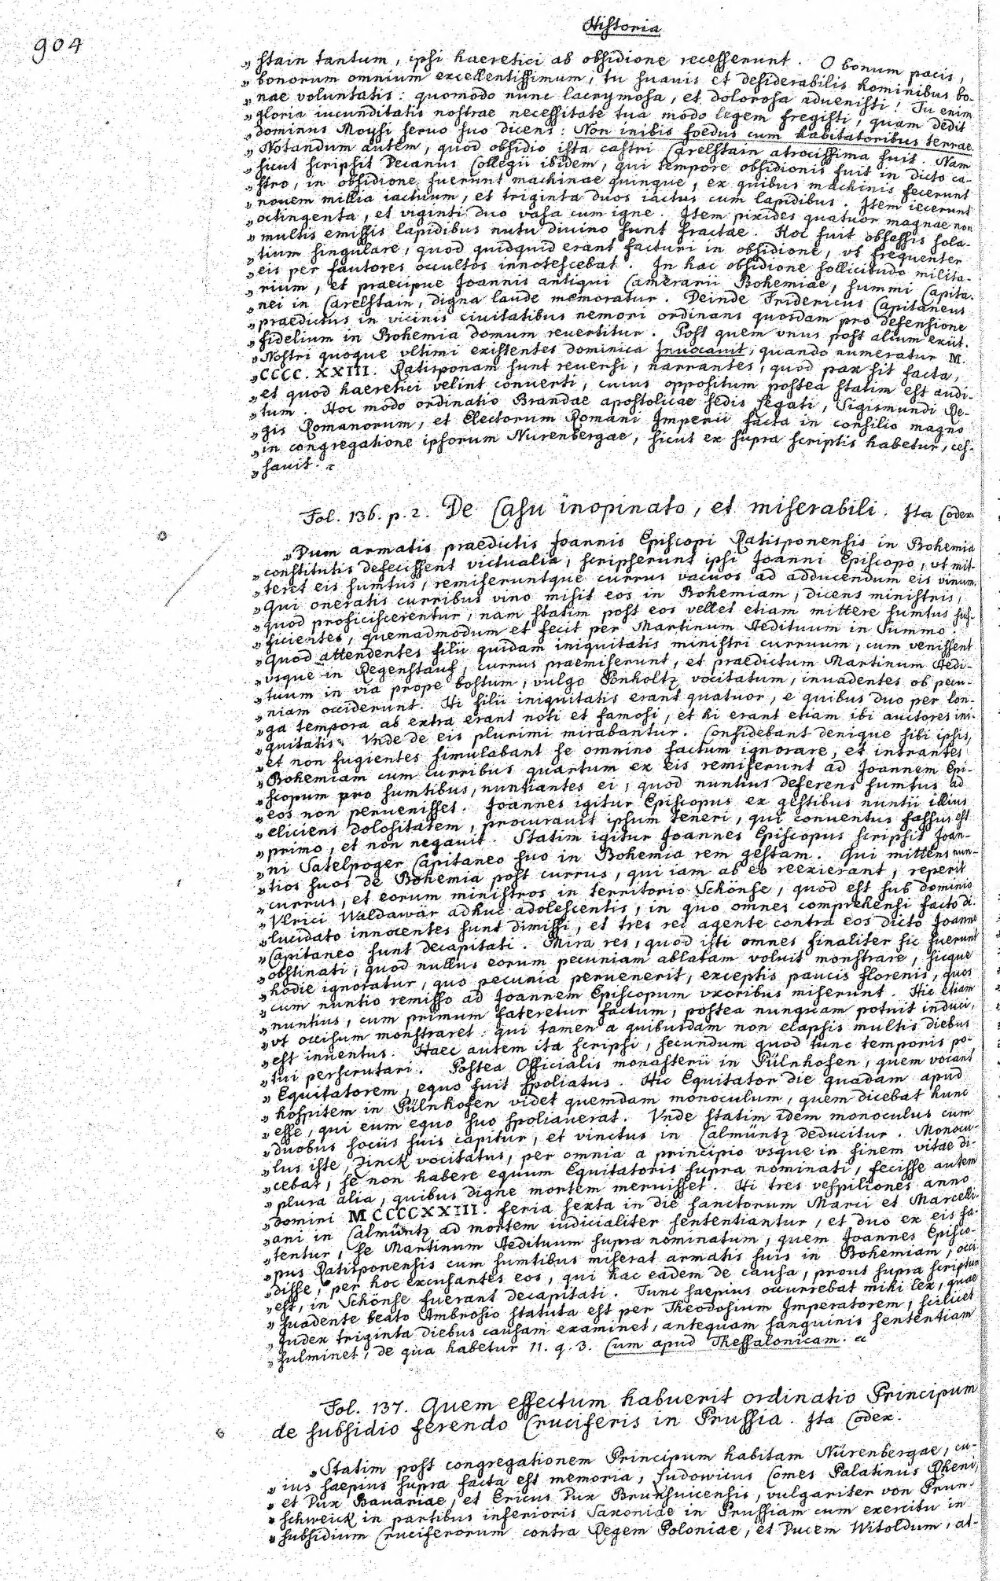 Historia
904
„stain tantum, ipsi haeretici ab obsidione recesserunt. O bonum pacis,
„bonorum omnium excellentissimum, tu suauis et desiderabilis hominibus bo-
„nae voluntatis: quomodo nunc lacrymosa, et dolorosa aduenisti! Tu enim
„gloria iucunditatis nostrae necessitate tua modo legem fregisti, quam dedit
„dominus Moysi seruo suo dicens: Non inibis foedus cum habitatoribus terrae.
„Notandum autem, quod obsidio ista castri Carelstain atrocissima fuit. Nam
„sicut scripsit Decanus Collegii ibidem, qui tempore obsidionis fuit in dicto ca-
„stro, in obsidione fuerunt machinae quinque, ex quibus machinis fecerunt
„nouem millia iactuum, et triginta duos iactus cum lapidibus. Item iecerunt
„octingenta, et viginti duo vasa cum igne. Item pixides quatuor magnae non
„multis emissis lapidibus nutu diuino sunt fractae. Hoc fuit obsessis sola-
„tium singulare, quod quidquid erant facturi in obsidione, vt frequenter
„eis per fautores occultos innotescebat. In hac obsidione sollicitudo milita-
„rium, et praecipue Joannis antiqui Camerarii Bohemiae, summi Capita-
„nei in Carelstain, digna laude memoratur. Deinde Fridericus Capitaneus
„praedictus in vicinis ciuitatibus nemori ordinans quosdam pro defensione
„fidelium in Bohemia domum reuertitur. Post quem vnus post alium exiit.
„Nostri quoque vltimi existentes dominica Inuocauit, quando numeratur M.
„CCCC. XXIII. Ratisponam sunt reuersi, narrantes, quod pax sit facta,
„et quod haeretici velint conuerti, cuius oppositum postea statim est audi-
„tum. Hoc modo ordinatio Brandae apostolicae sedis legati, Sigismundi Re-
„gis Romanorum, et Electorum Romani Imperii facta in consilio magno
„in congregatione ipsorum Nurenbergae, sicut ex supra scriptis habetur, ces-
„sauit.
Fol. 136. p. 2. De Casu inopinato, et miserabili. Ita Codex
„Dum armatis praedictis Joannis Episcopi Ratisponensis in Bohemia
„constitutis defecissent victualia, scripserunt ipsi Joanni Episcopo, vt mit-
„teret eis sumtus, remiseruntque currus vacuos ad adducendum eis vinum.
„Qui oneratis curribus vino misit eos in Bohemiam, dicens ministris,
„quod proficiscerentur, nam statim post eos vellet etiam mittere sumtus suf-
„ficientes, quemadmodum et fecit per Martinum Aedituum in Summo.
„Quod attendentes filii quidam iniquitatis ministri curruum, cum venissent
„vsque in Regenstauf, currus praemiserunt, et praedictum Martinum Aedi-
„tuum in via prope bostum, vulgo Ponholtz vocitatum, inuadentes ob pecu-
„niam occiderunt. Hi filii iniquitatis erant quatuor, e quibus duo per lon-
„ga tempora ab extra erant noti et famosi, et hi erant etiam ibi auctores ini-
„quitatis. Vnde de eis plurimi mirabantur. Confidebant denique sibi ipsis,
„et non fugientes simulabant se omnino factum ignorare, et intrantes
„Bohemiam cum curribus quartum ex eis remiserunt ad Joannem Epi-
„scopum pro sumtibus, nuntiantes ei, quod nuntius deferens sumtus ad
„eos non peruenisset. Joannes igitur Episcopus ex gestibus nuntii illius
„eliciens dolositatem, procurauit ipsum teneri, qui conuentus fassus est
„primo, et non negauit. Statim igitur Joannes Episcopus scripsit Joan-
„ni Satelpoger Capitaneo suo in Bohemia rem gestam. Qui mittens nun-
„tios suos de Bohemia post currus, qui iam ab eo reexierant, reperit
„currus, et eorum ministros in territorio Schönse, quod est sub dominio
„Vlrici Waldawar adhuc adolescentis, in quo omnes comprehensi facto di-
„lucidato innocentes sunt dimissi, et tres rei agente contra eos dicto Joanne
„Capitaneo sunt decapitati. Mira res, quod isti omnes finaliter sic fuerunt
„obstinati, quod nullus eorum pecuniam ablatam voluit monstrare, sicque
„hodie ignoratur, quo pecunia peruenerit, exceptis paucis florenis, quos
„cum nuntio remisso ad Joannem Episcopum vxoribus miserunt. Hic etiam
„nuntius, cum primum fateretur factum, postea nunquam potuit induci,
„vt occisum monstraret: qui tamen a quibusdam non elapsis multis diebus
„est inuentus. Haec autem ita scripsi, secundum quod tunc temporis po-
„tui perscrutari. Postea Officialis monasterii in Pülnhofen, quem vocant
„Equitatorem, equo fuit spoliatus. Hic Equitator die quadam apud
„hospitem in Pülnhofen videt quemdam monoculum, quem dicebat hunc
„esse, qui eum equo suo spoliauerat. Vnde statim idem monoculus cum
„duobus sociis suis capitur, et vinctus in Calmüntz deducitur. Monocu-
„lus iste, Zinck vocitatus, per omnia a principio vsque in finem vitae di-
„cebat, se non habere equum Equitatoris supra nominati, fecisse autem
„plura alia, quibus digne mortem meruisset. Hi tres vespiliones anno
„domini MCCCCXXIII. feria sexta in die sanctorum Marci et Marcelli-
„ani in Calmüntz ad mortem iudicialiter sententiantur, et duo ex eis fa-
„tentur, se Martinum Aedituum supra nominatum, quem Joannes Episco-
„pus Ratisponensis cum sumtibus miserat armatis suis in Bohemiam, occi-
„disse, per hoc excusantes eos, qui hac eadem de causa, prout supra scriptum
„est, in Schönse fuerant decapitati. Tunc saepius occurrebat mihi lex, quae
„suadente beato Ambrosio statuta est per Theodosium Imperatorem, scilicet
„Judex triginta diebus causam examinet, antequam sanguinis sententiam
„fulminet, de qua habetur 11. q. 3. Cum apud Thessalonicam.
Fol. 137. Quem effectum habuerit ordinatio Principum
de subsidio ferendo Cruciferis in Prussia. Ita Codex.
„Statim post congregationem Principum habitam Nürenbergae, cu-
„ius saepius supra facta est memoria, Ludowicus Comes Palatinus Rheni,
„et Dux Bauariae, et Ericus Dux Brunsuicensis, vulgariter von Prun-
„schweick in partibus inferioris Saxoniae in Prussiam cum exercitu in
„subsidium Cruciferorum contra Regem Poloniae, et Ducem Witoldum, at-